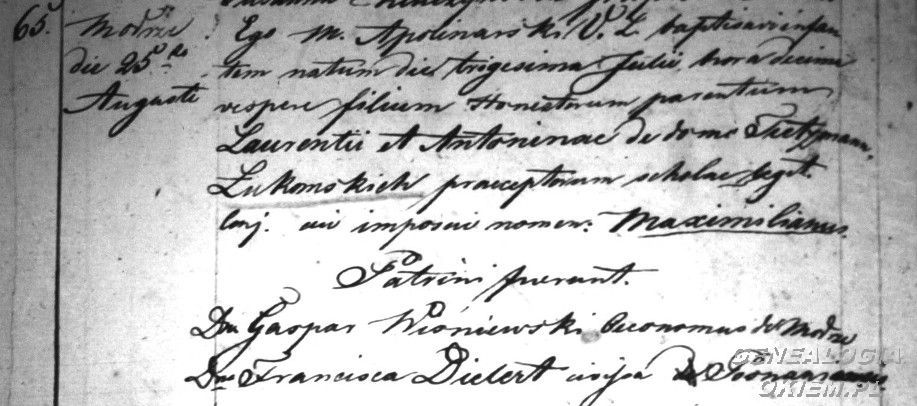 65. Modrze Ego M. Apolinarski V. L. baptisavi infan
die 25ta tem natum die trigesima Julii, hora decima
Augusti vespere filium Honestorum parentum
Laurentii et Antoninae de domo
Łukomskich praeceptorum scholae legit.
conj. cui imposui nomen: Maximilianus.
Patrini fuerunt.
Dnus Gaspar Wiśniewski Oeconomus de Modrze
Dna Francisca Dielert de
GENEALOGIA
OKIEM.PL